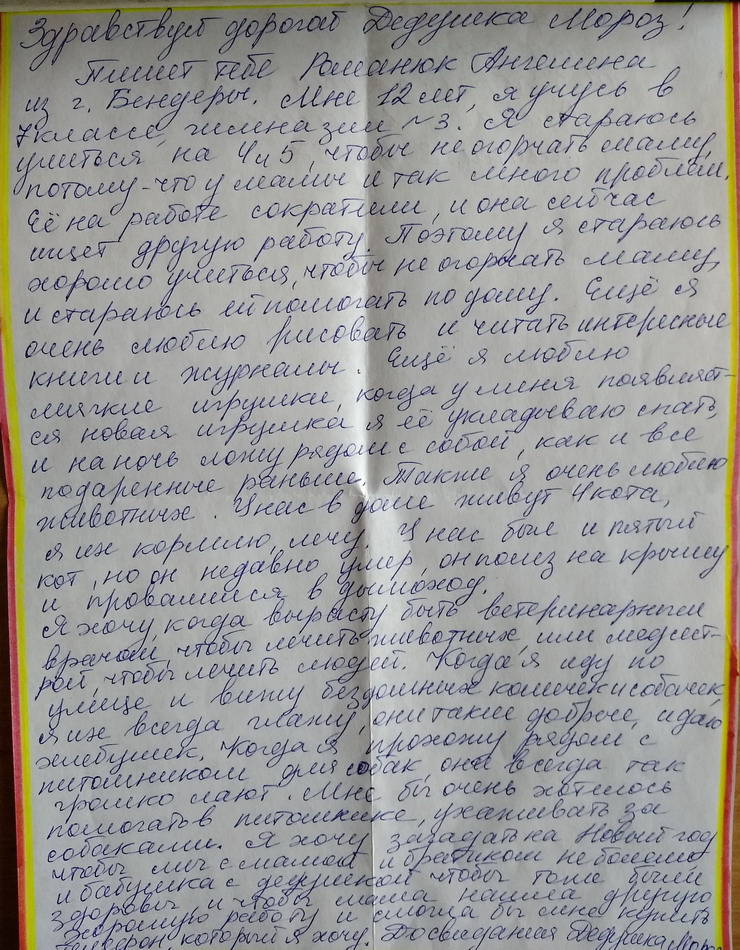 Здравствуй дорогой Дедушка Мороз!
Пишет тебе Романюк Ангелина
из г. Бендеры. Мне 12 лет, я учусь в
7 классе, гимназии №3. Я стараюсь
учиться на 4 и 5, чтобы не огорчать маму,
потому-что у мамы и так много проблем.
Её на работе сократили, и она сейчас
ищет другую работу. Поэтому я стараюсь
хорошо учиться, чтобы не огорчать маму,
и стараюсь ей помогать по дому. Ещё я
очень люблю рисовать и читать интересные
книги и журналы. Ещё я люблю
мягкие игрушки, когда у меня появляет-
ся новая игрушка я её укладываю спать,
и на ночь ложу рядом с собой, как и все
подаренные раньше. Также я очень люблю
животных. У нас в доме живут 4 кота,
я их кормлю, лечу. У нас был и пятый
кот, но он недавно умер, он полез на крышу
и провалился в дымоход.
Я хочу, когда вырасту быть ветеринарным
врачом, чтобы лечить животных, или медсест-
рой, чтобы лечить людей. Когда я иду по
улице и вижу бездомных кошечек и собачек,
я их всегда глажу, они такие добрые, и даю
хлебушек. Когда я прохожу рядом с
питомником для собак, они всегда так
громко лают. Мне бы очень хотелось
помогать в питомнике, ухаживать за
собаками. Я хочу загадать на Новый год
чтобы мы с мамой и братиком не болели
и бабушка с дедушкой чтобы тоже были
здоровы и чтобы мама нашла другую
хорошую работу и смогла бы мне купить
телефон, который я хочу. Досвидания Дедушка Мороз